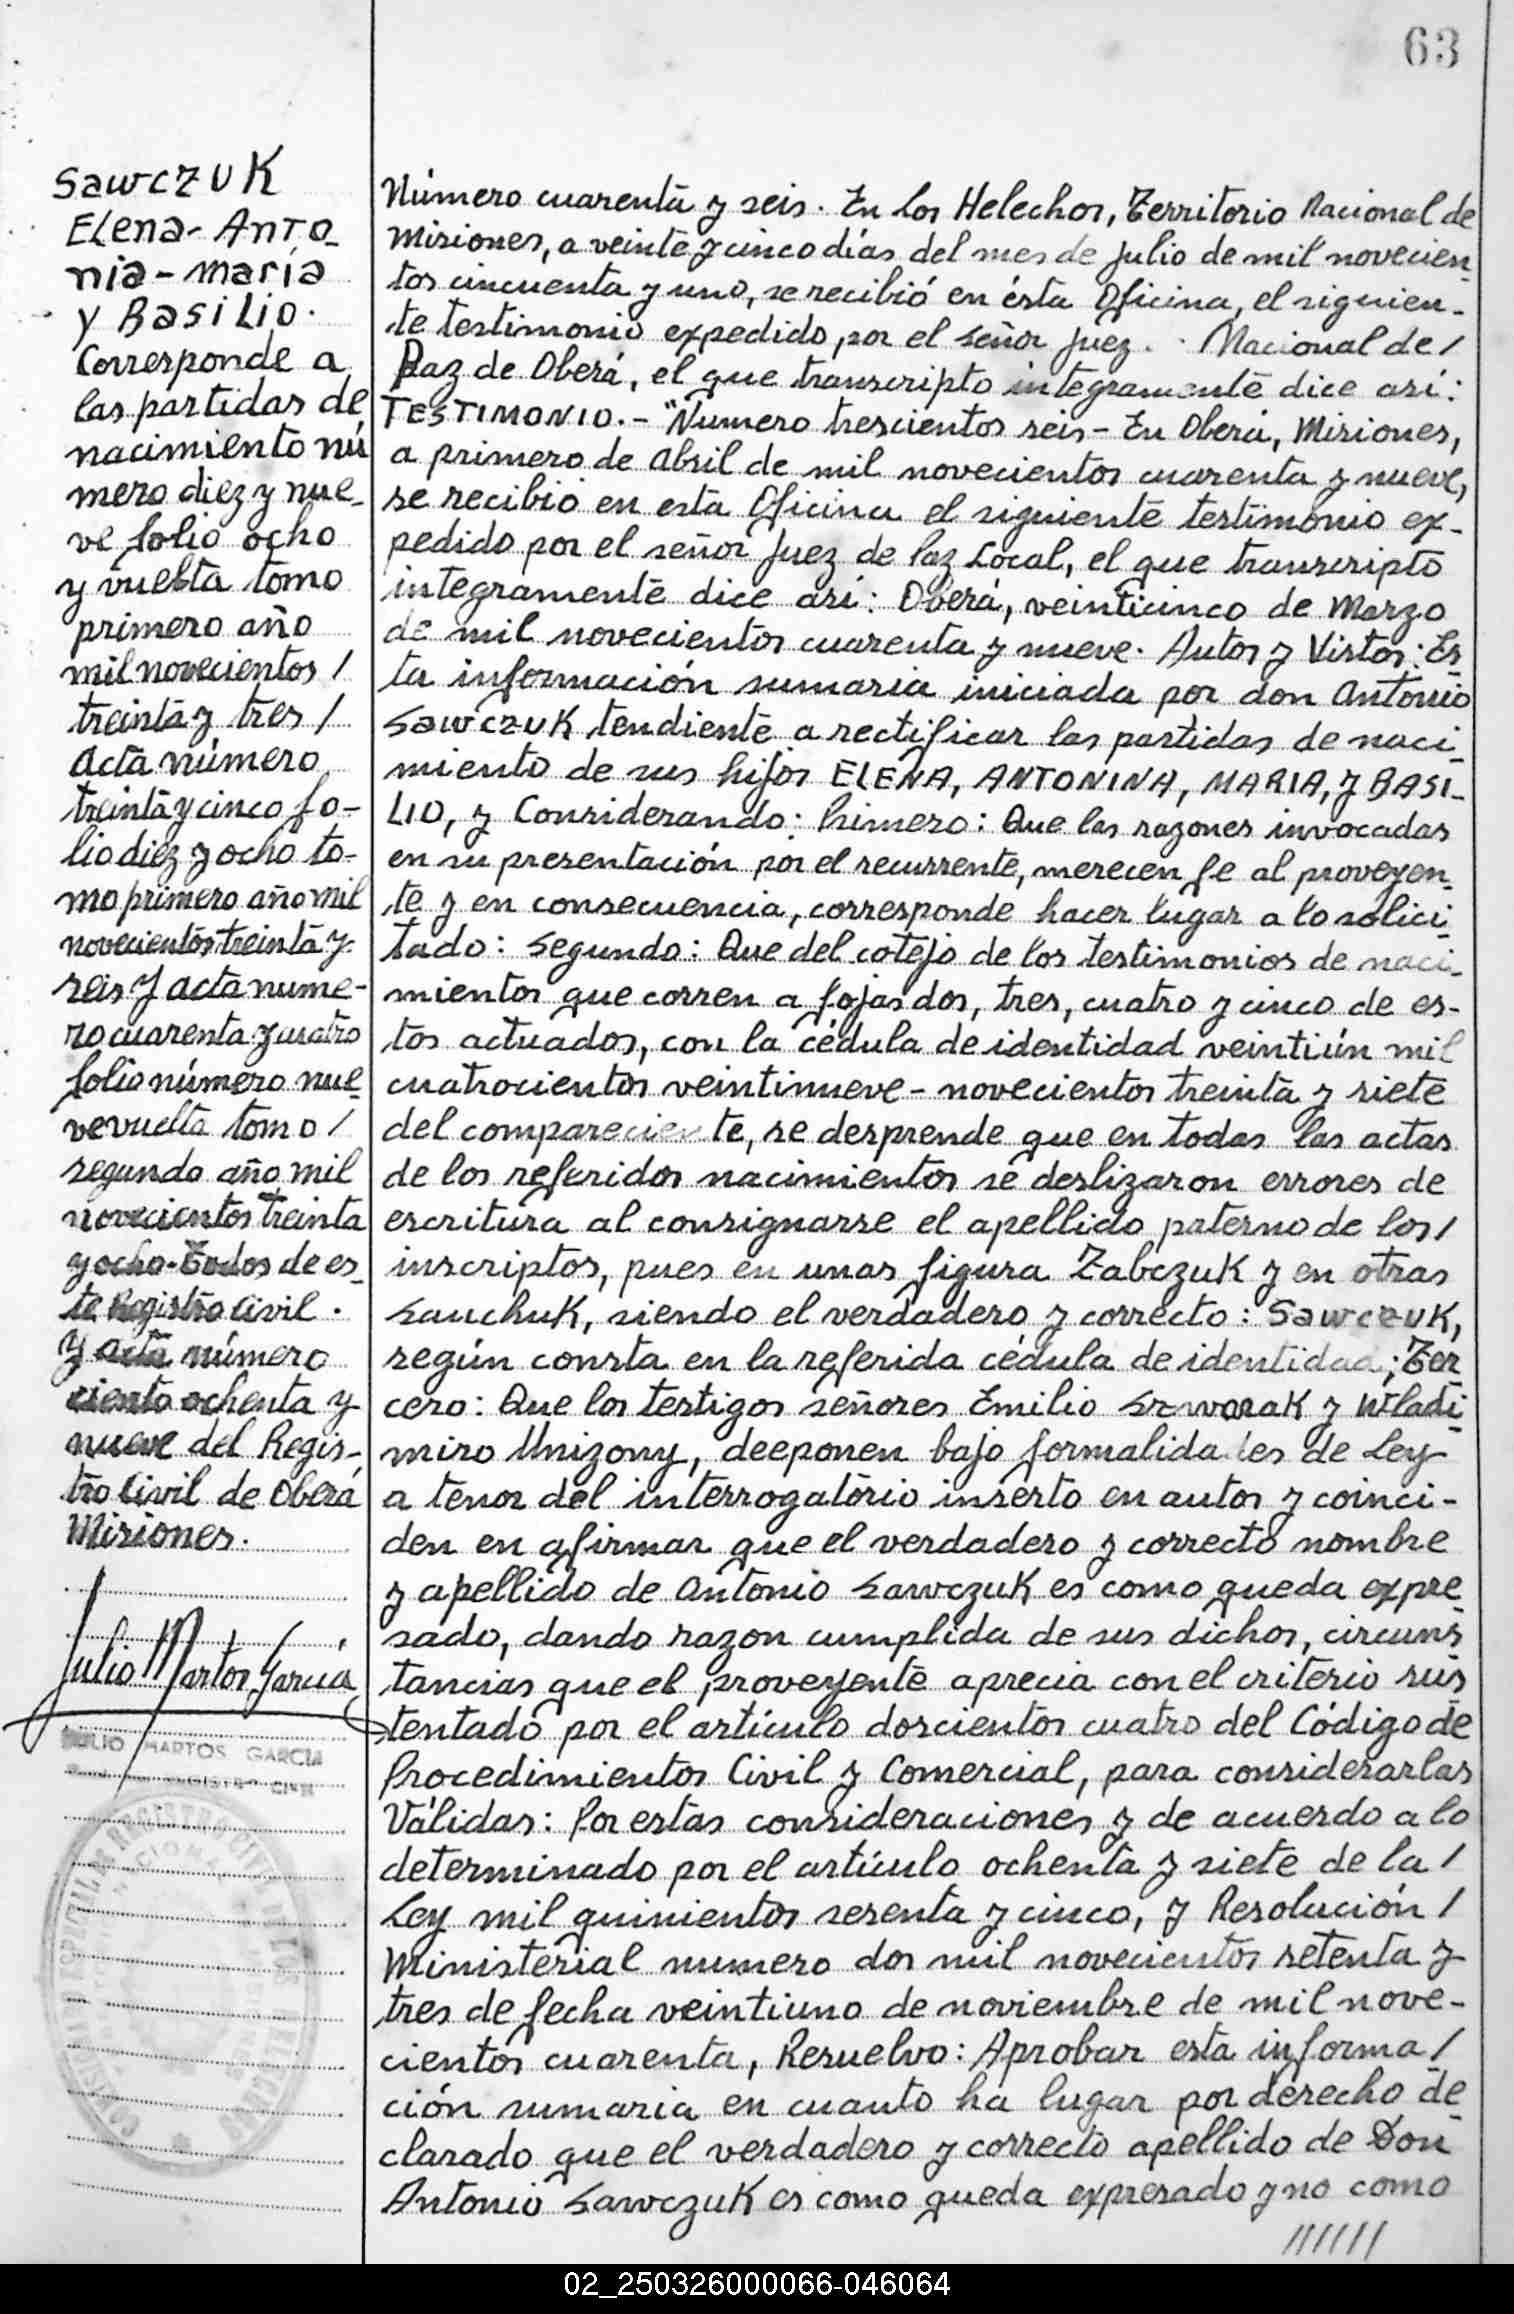 63
Sawczuk
Elena-Anto-
nia-maría
y Basilio.
Corresponde a
las partidas de
nacimiento nú
mero diez y nue-
ve folio ocho
y vuelta tomo
primero año
mil novecientos /
treinta y tres /
acta número
treinta y cinco fo-
lio diez y ocho to-
mo primero año mil
novecientos treinta y
seis y acta nume-
ro cuarenta y cuatro
folio número nue
ve vuelta tomo /
segundo año mil
novecientos treinta
y ocho-Todos de es-
te Registro Civil.
y acta número
ciento ochenta y
nueve del Regis-
tro Civil de Oberá
Misiones.
Julio Martos García
JULIO MARTOS GARCIA
REGISTRO CIVIL
Número cuarenta y seis. En Los Helechos, Territorio Nacional de
Misiones, a veinte y cinco días del mes de Julio de mil novecien-
tos cincuenta y uno, se recibió en ésta Oficina, el siguien-
te testimonio expedido, por el señor Juez. Nacional de /
Paz de Oberá, el que transcripto integramente dice así:
TESTIMONIO.- "Numero trescientos seis- En Oberá, Misiones,
a primero de Abril de mil novecientos cuarenta y nueve,
se recibió en esta Oficina el siguiente testimonio ex-
pedido por el señor Juez de Paz Local, el que transcripto
integramente dice asi: Oberá, veinticinco de Marzo
de mil novecientos cuarenta y nueve. Autos y Vistos: Es
ta información sumaria iniciada por don Antonio
Sawczuk tendiente a rectificar las partidas de naci-
miento de sus hijos ELENA, ANTONINA, MARIA, y BASI-
LIO, y Considerando: Primero: Que las razones invocadas
en su presentación por el recurrente, merecen fe al proveyen-
te y en consecuencia, corresponde hacer lugar a lo solici-
tado: Segundo: Que del cotejo de los testimonios de naci-
mientos que corren a fojas dos, tres, cuatro y cinco de es-
tos actuados, con la cédula de identidad veintiún mil
cuatrocientos veintinueve - novecientos treinta y siete
del compareciente, se desprende que en todas las actas
de los referidos nacimientos se deslizaron errores de
escritura al consignarse el apellido paterno de los /
inscriptos, pues en unas figura Zabczuk y en otras
Sauchuk, siendo el verdadero y correcto: Sawczuk,
según consta en la referida cédula de identidad; Ter
cero: Que los testigos señores Emilio y Wladi
miro Unizony, deeponen bajo formalidades de Ley
a tenor del interrogatorio inserto en autos y coinci-
den en afirmar que el verdadero y correcto nombre
y apellido de Antonio Sawczuk es como queda expre
sado, dando razon cumplida de sus dichos, circuns
tancias que el proveyente aprecia con el criterio sus
tentado por el artículo doscientos cuatro del Código de
Procedimientos Civil y Comercial, para considerarlas
Válidas: Por estas consideraciones y de acuerdo a lo
determinado por el artículo ochenta y siete de la /
Ley mil quinientos sesenta y cinco, y Resolución /
Ministerial numero dos mil novecientos setenta y
tres de fecha veintiuno de noviembre de mil nove-
cientos cuarenta, Resuelvo: Aprobar esta informa /
ción sumaria en cuanto ha lugar por derecho de
clarado que el verdadero y correcto apellido de Don
Antonio Sawczuk es como queda expresado y no como
//////
02_250326000066-046064